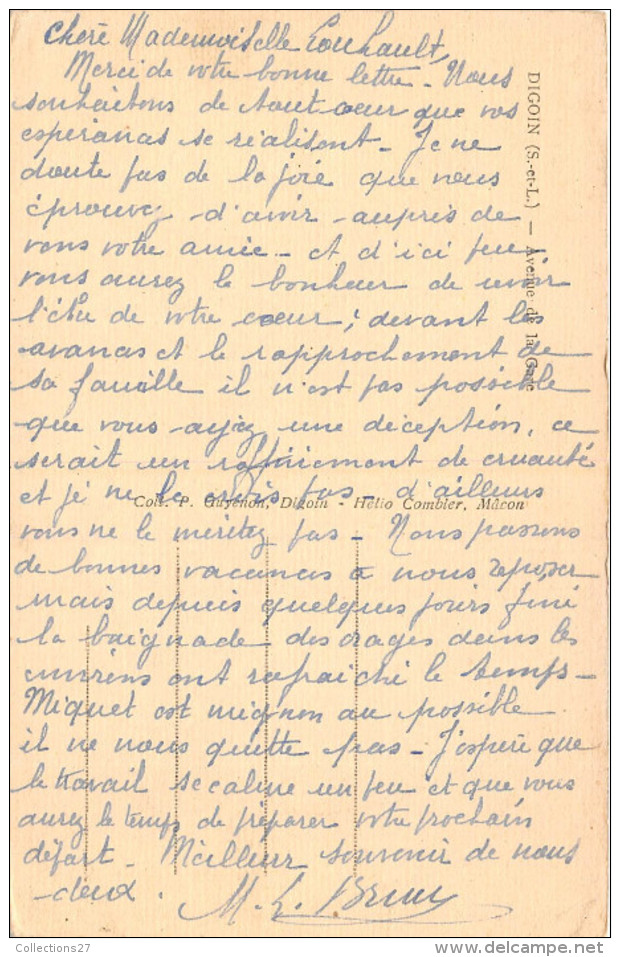 Chère Mademoiselle
Merci de votre bonne lettre - Nous
souhaitons de tout cœur que vos
espérances se réalisent - Je ne
doute pas de la joie que vous
éprouvez d'avoir auprès de
vous votre amie - et d'ici peu
vous aurez le bonheur de revoir
l'élu de votre cœur ; devant les
avances et le rapprochement de
sa famille il n'est pas possible
que vous ayiez une déception, ce
serait un raffiniement de cruauté
et je ne le crois pas - d'ailleurs
vous ne le méritez pas - Nous passons
de bonnes vacances à nous reposer
mais depuis quelques jours fini
la baignade des orages dans les
environs ont rafraichi le temps -
Miquet est mignon au possible
il ne nous quitte pas - J'espère que
le travail se calme un peu et que vous
aurez le temps de préparer votre prochain
départ - Meilleur souvenir de nous
deux.
M. L.
DIGOIN (S.-et-L.) — Avenue de la Gare
Coll. P. Guyenon, Digoin - Hélio Combier, Mâcon
Collections27
www.delcampe.net